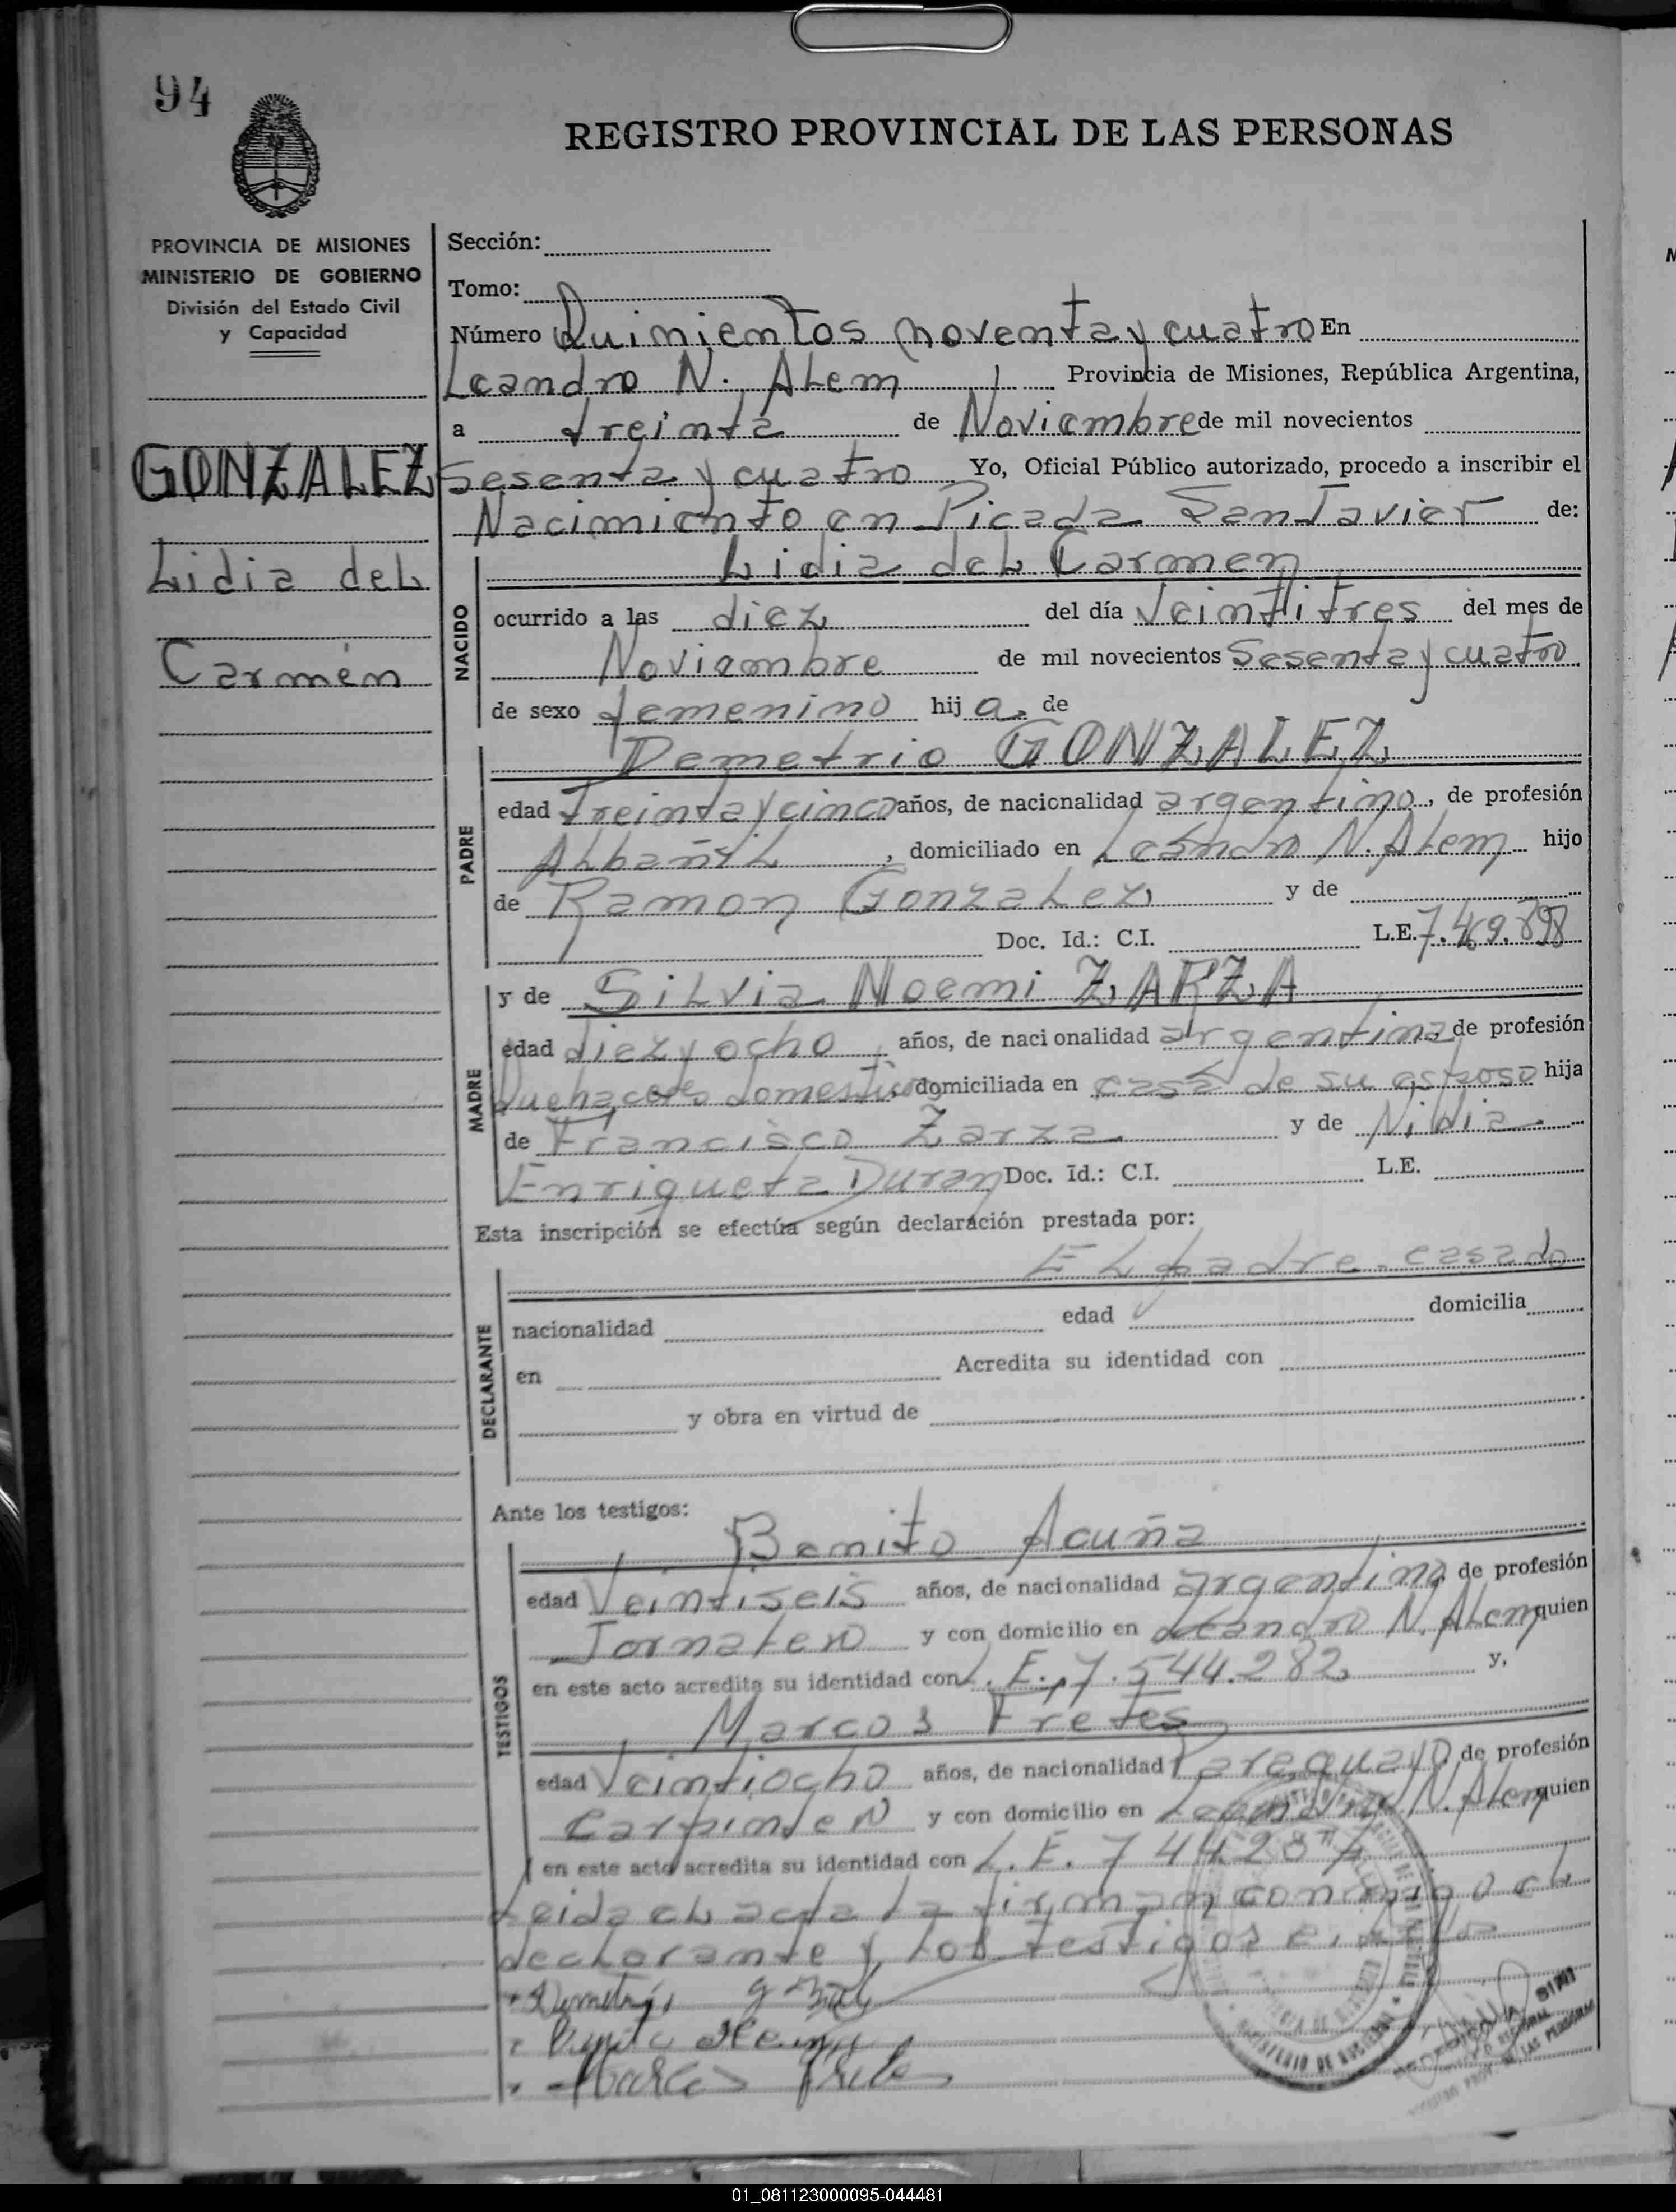 94
REGISTRO PROVINCIAL DE LAS PERSONAS
PROVINCIA DE MISIONES
MINISTERIO DE GOBIERNO
División del Estado Civil
y Capacidad
GONZALEZ
Lidia del
Carmén
Sección:
Tomo:
Número Quinientos noventa y cuatro En
Leandro N. Alem, Provincia de Misiones, República Argentina,
a treinta de Noviembre de mil novecientos
Sesenta y cuatro Yo, Oficial Público autorizado, procedo a inscribir el
Nacimiento en Picada San Javier de:
NACIDO
Lidia del Carmen
ocurrido a las diez del día Veintitres del mes de
Noviembre de mil novecientos Sesenta y cuatro
de sexo femenino hij a. de
PADRE
Demetrio GONZALEZ
edad Treinta y cinco años, de nacionalidad argentino, de profesión
Albañil, domiciliado en Leandro N. Alem hijo
de Ramon Gonzalez y de
Doc. Id.: C.I. L.E. 7.469.898
MADRE
y de Silvia Noemi ZARZA
edad diez y ocho años, de nacionalidad argentina, de profesión
Quehaceres domestico domiciliada en casa de su esposo hija
de Francisco Zarza y de Nidia
Enriqueta Duran Doc. Id.: C.I. L.E.
Esta inscripción se efectúa según declaración prestada por:
DECLARANTE
El padre. casado
nacionalidad edad domicilia
en Acredita su identidad con
y obra en virtud de
Ante los testigos:
TESTIGOS
Benito Acuña
edad Veintiseis años, de nacionalidad argentino, de profesión
Jornalero y con domicilio en Leandro N. Alem quien
en este acto acredita su identidad con L.E. 7.544.282 y,
Marcos Fretes
edad Veintiocho años, de nacionalidad Paraguayo, de profesión
Carpintero y con domicilio en Leandro N. Alem quien
en este acto acredita su identidad con L.E. 7442874
Leida el acta la firman conmigo el
declarante y los testigos
MINISTERIO DE GOBIERNO
01_081123000095-044481